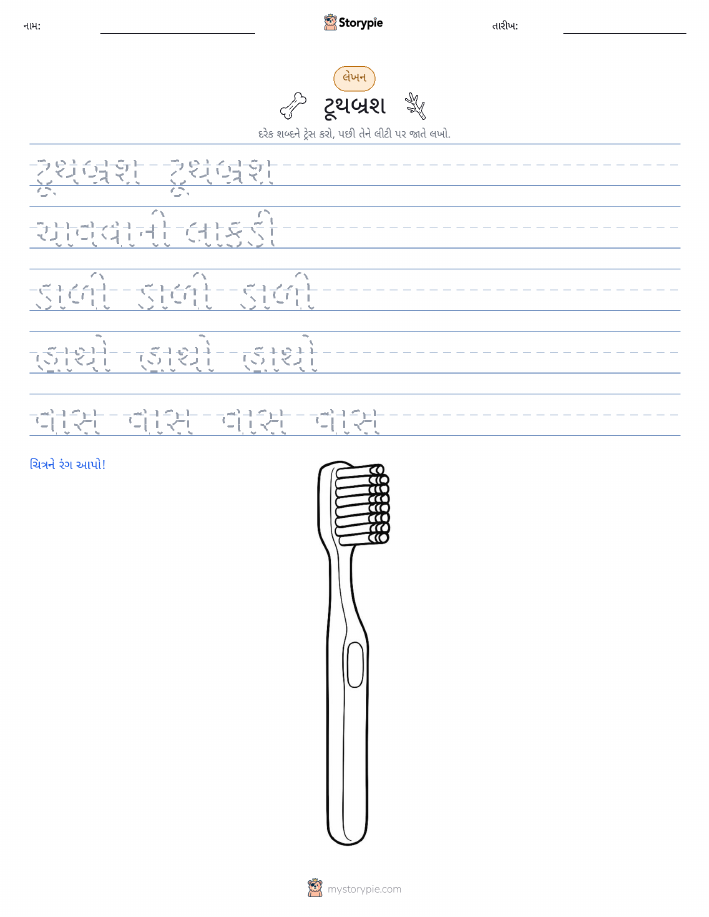 નામ:
Storypie
તારીખ:
લેખન
ટૂથબ્રશ
દરેક શબ્દને ટ્રેસ કરો, પછી તેને લીટી પર જાતે લખો.
ટૂથબ્રશ ટૂથબ્રશ
ચાવવાની લાકડી
ડાળી ડાળી ડાળી
હાથો હાથો હાથો
વાસ વાસ વાસ વાસ
ચિત્રને રંગ આપો!
mystorypie.com